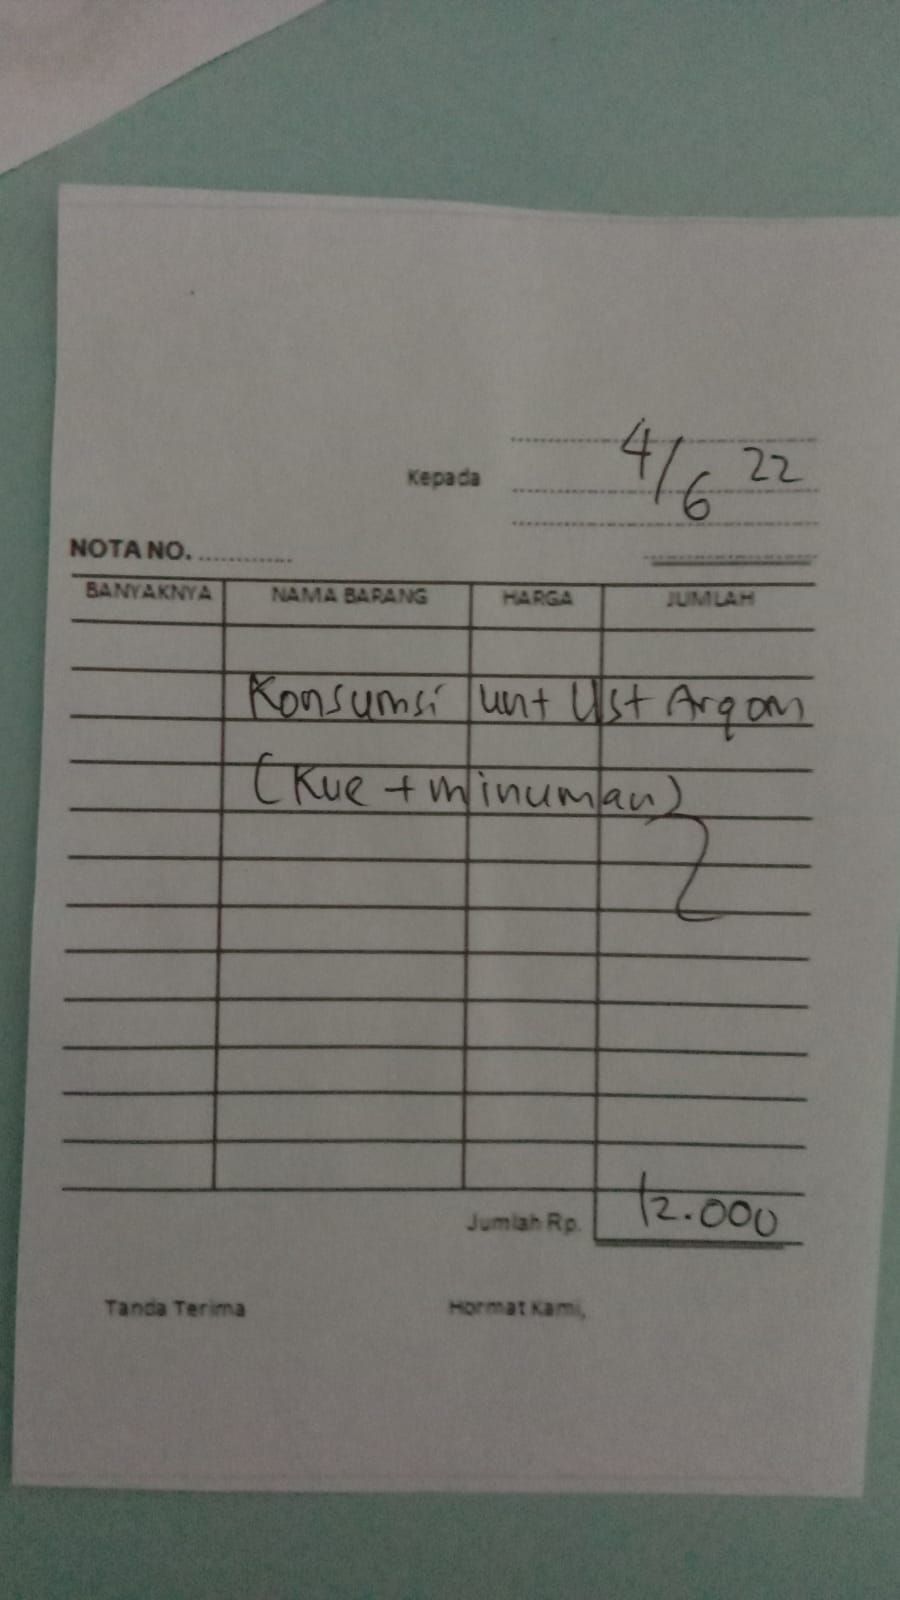 4/6 22
Kepada
NOTA NO. ............
BANYAKNYA NAMA BARANG HARGA JUMLAH
Konsumsi unt Ust Arqom
(Kue + minuman)
Jumlah Rp. 12.000
Tanda Terima Hormat Kami,